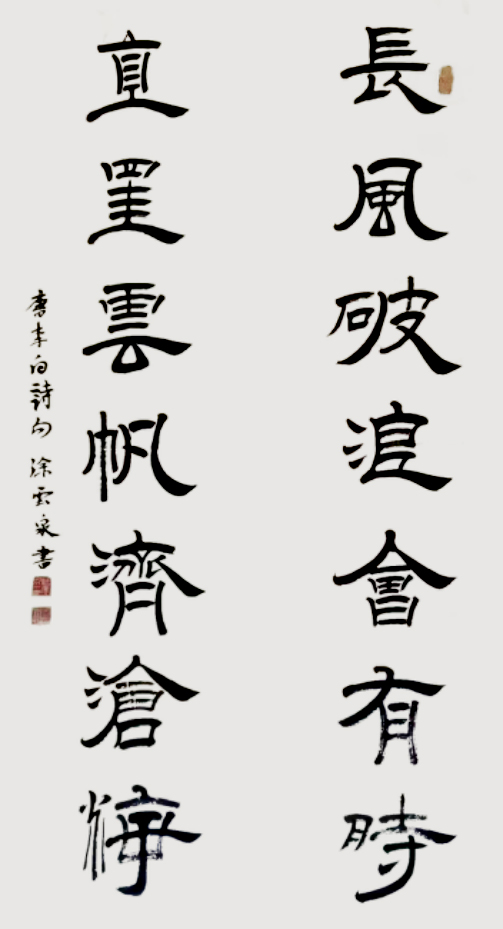 長風破浪會有時
直罣雲帆濟滄海
唐李白詩句 涂雲泉書